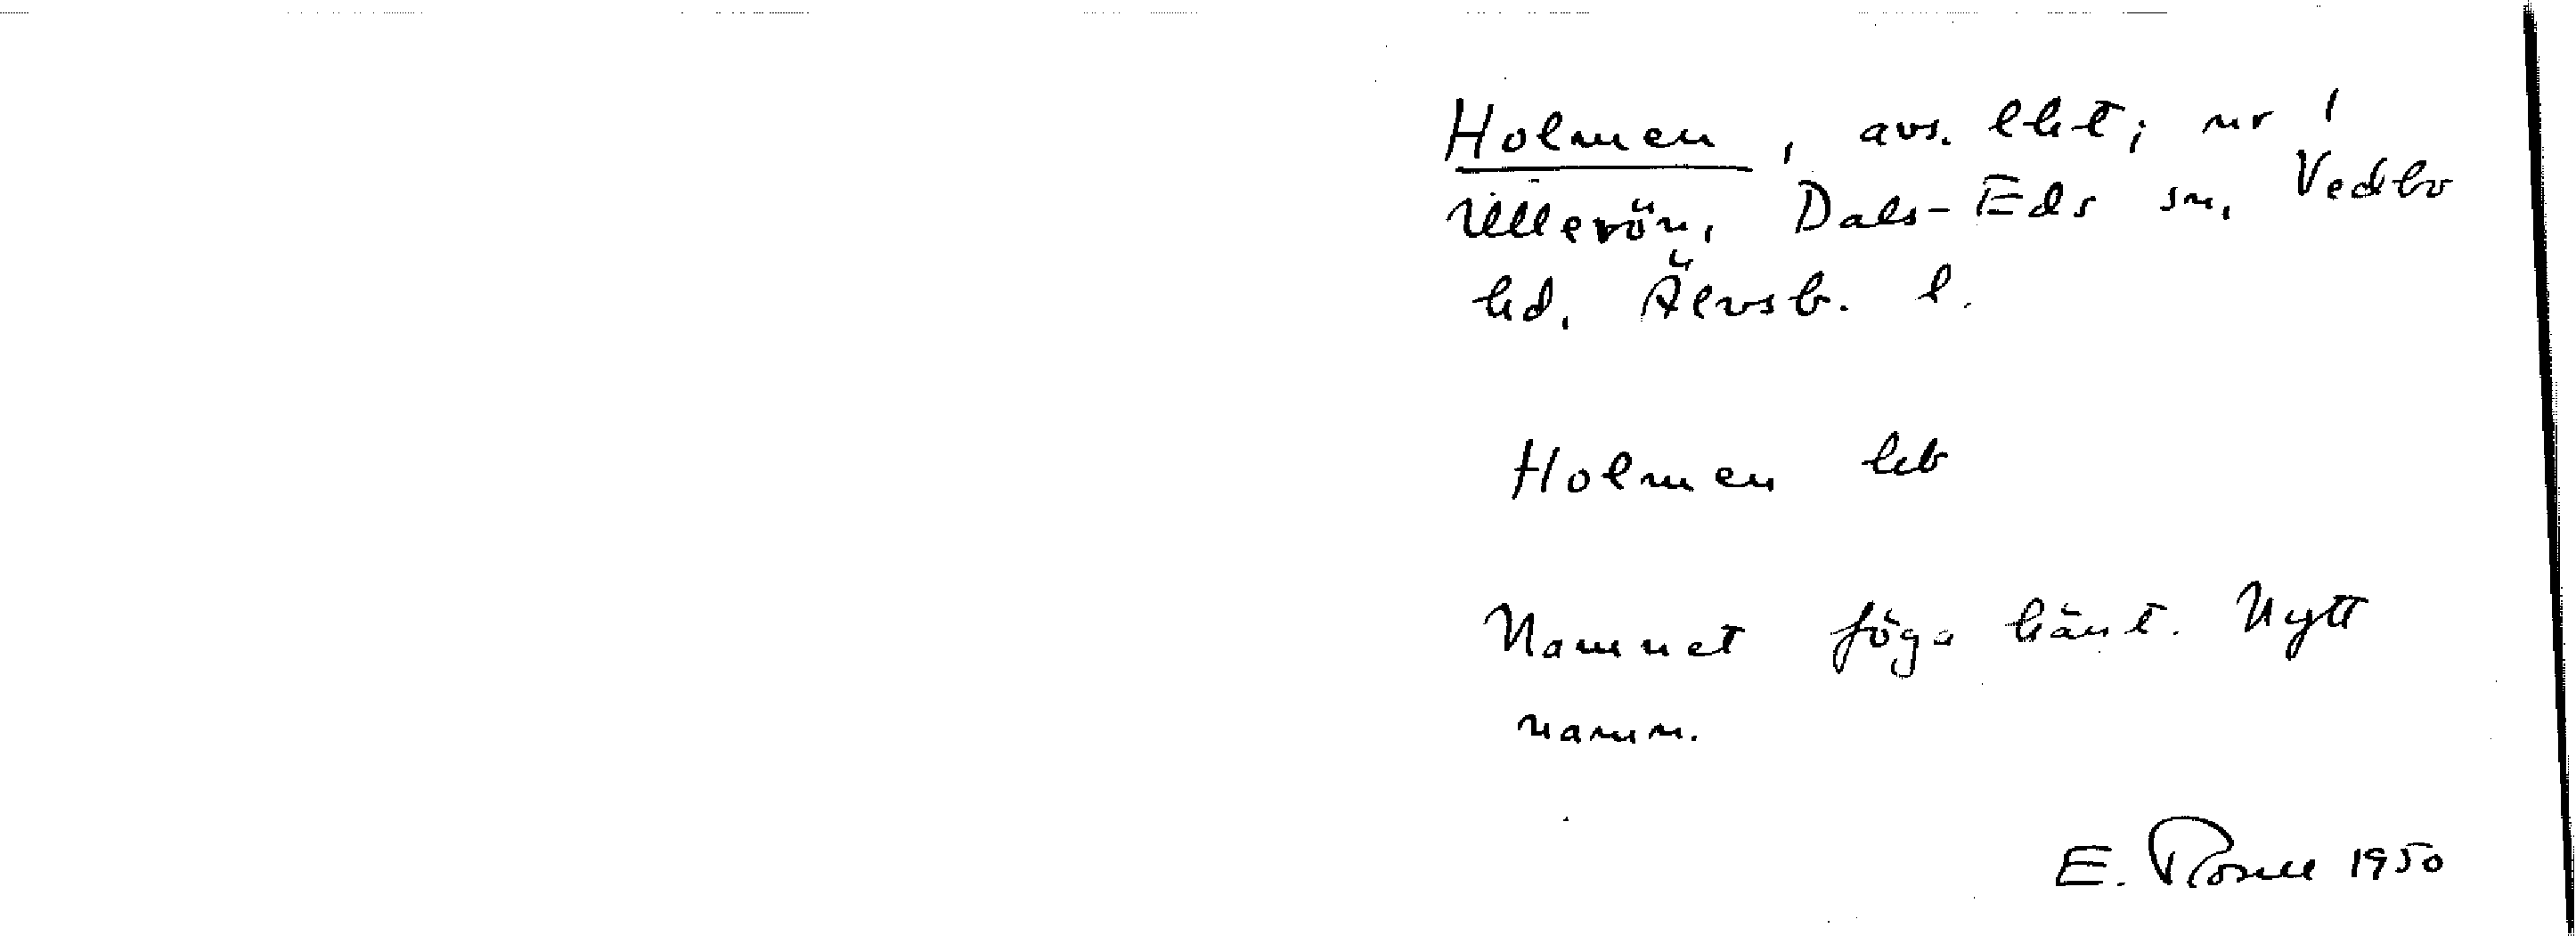 Holmen, avs. lht; nr 1
Ullerön, Dals-Eds sn, Vedbo
hd, Älvsb. l.
Holmen hb
Namnet föga känt. Nytt
namn.
E. Rosell 1950